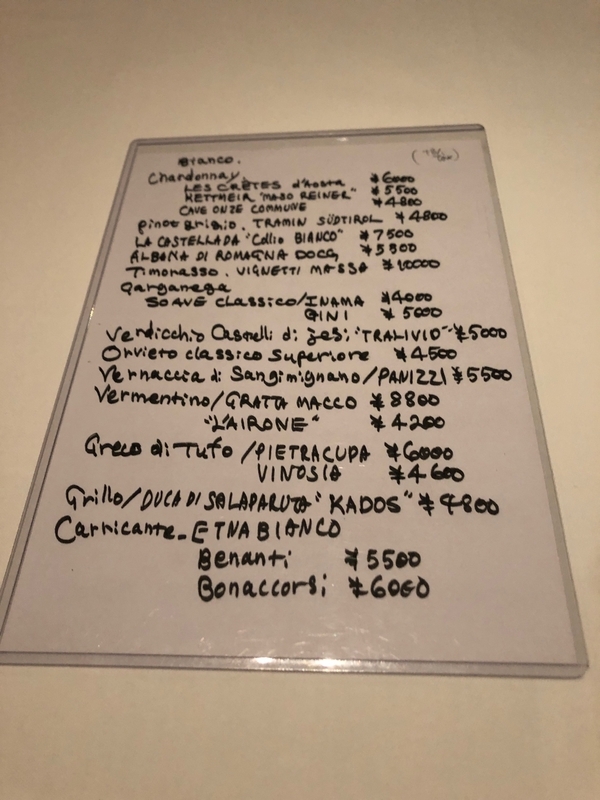 Bianco.
Chardonnay,
LES CRÈTES d'Aosta ¥6000
KETTMEIR "MASO REINER" ¥5500
CAVE ONZE COMMUNE ¥4800
pinot grigio. TRAMIN SÜDTIROL ¥4800
LA CASTELLADA "Collio BIANCO" ¥7500
ALBANA DI ROMAGNA DOCG ¥5500
Timorasso. VIGNETTI MASSA ¥10000
Garganega
SOAVE CLASSICO/INAMA ¥4000
GINI ¥5000
Verdicchio Castelli di Jesi "TRALIVIO" ¥5000
Orvieto classico Superiore ¥4500
Vernaccia di Sangimignano/PANIZZI ¥5500
Vermentino/GRATTA MACCO ¥8800
"L'AIRONE" ¥4200
Greco di Tufo/PIETRACUPA ¥6000
VINOSIA ¥4600
Grillo/DUCA DI SALAPARUTA "KADOS" ¥4800
Carricante-ETNA BIANCO
Benanti ¥5500
Bonaccorsi ¥6000